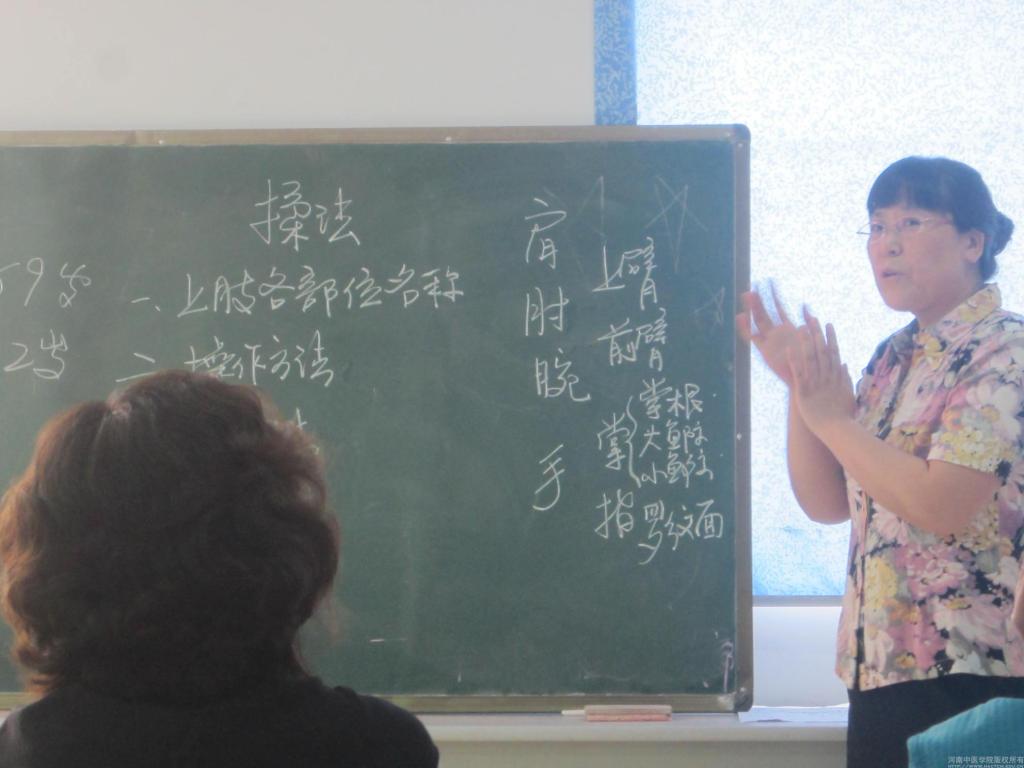 揉法
一、上肢各部位名称
二、操作方法
59岁
2岁
肩
肘
腕
手
上臂
前臂
掌
掌根
大鱼际
小鱼际
指 罗纹面
河南中医学院版权所有